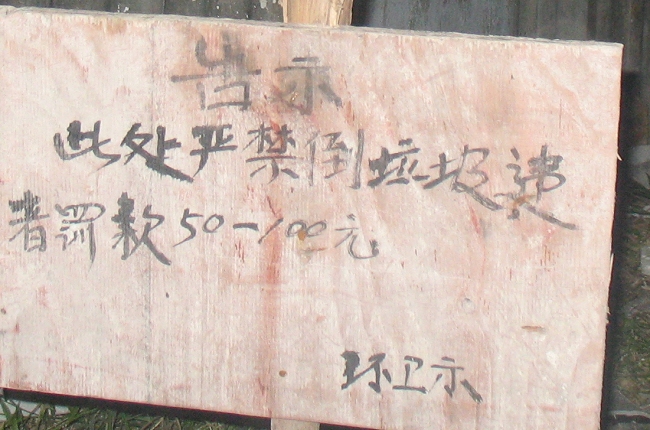 告示
此处严禁倒垃圾违
者罚款50-100元
环卫示